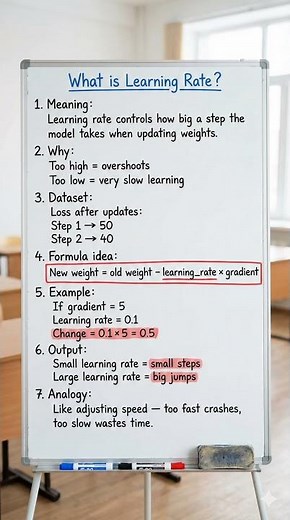 What is Learning Rate?
1. Meaning:
Learning rate controls how big a step the
model takes when updating weights.
2. Why:
Too high = overshoots
Too low = very slow learning
3. Dataset:
Loss after updates:
Step 1 → 50
Step 2 → 40
4. Formula idea:
New weight = old weight − learning_rate × gradient
5. Example:
If gradient = 5
Learning rate = 0.1
Change = 0.1 × 5 = 0.5
6. Output:
Small learning rate = small steps
Large learning rate = big jumps
7. Analogy:
Like adjusting speed — too fast crashes,
too slow wastes time.